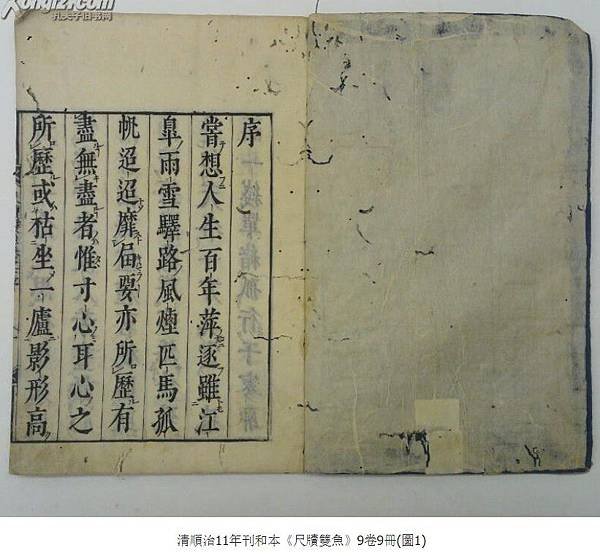 孔夫子旧书网
序
嘗想人生百年萍逐雖江
皐雨雪驛路風煙匹馬孤
帆迢迢靡屆要亦所歷有
盡無盡者惟寸心耳心之
所歷或枯坐一廬影形高
清順治11年刊和本《尺牘雙魚》9卷9冊(圖1)